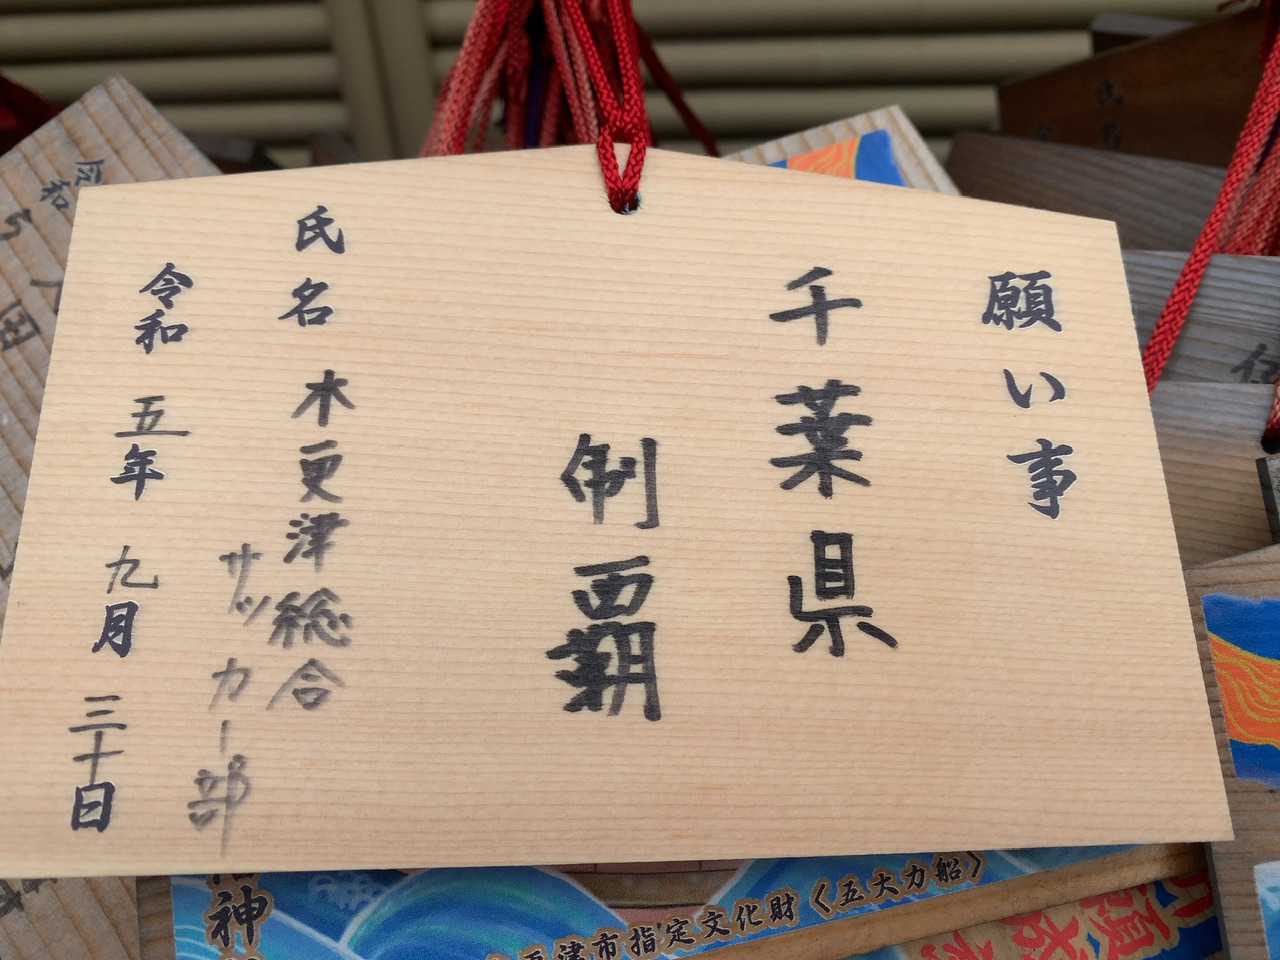 願い事
千葉県
制覇
氏名 木更津総合
サッカー部
令和 五年 九月 三十日
令和
神
更津市指定文化財〈五大力船〉